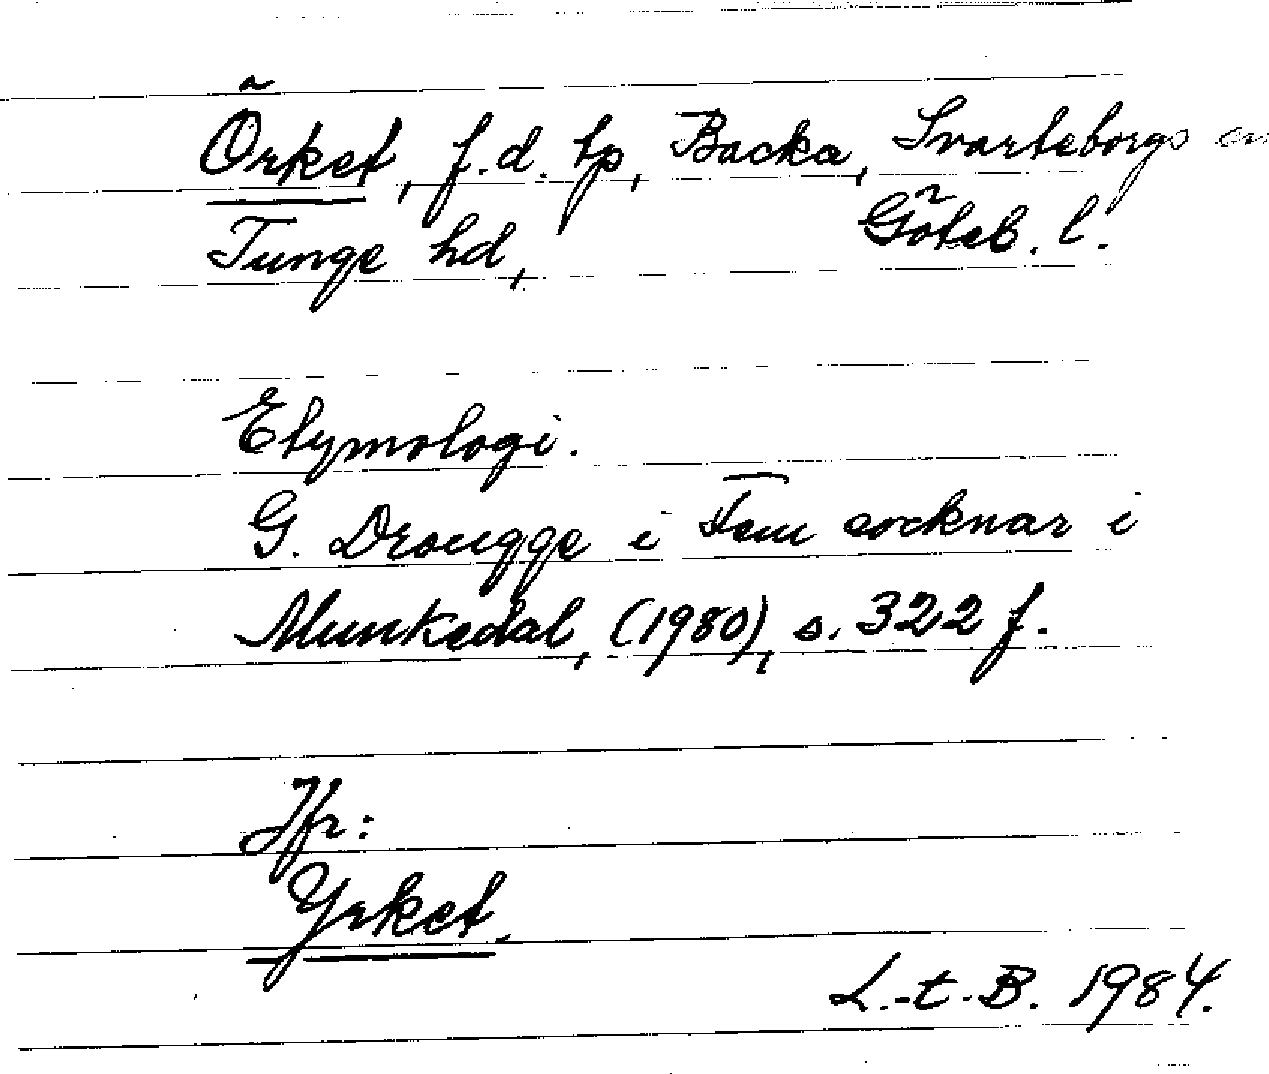 Örket, f.d. tp, Backa, Svarteborgs sn
Tunge hd, Göteb. l.
Etymologi.
G. Drougge i Fem socknar i
Munkedal, (1980), s. 322 f.
Jfr:
Yrket.
L.-t.-B. 1984.